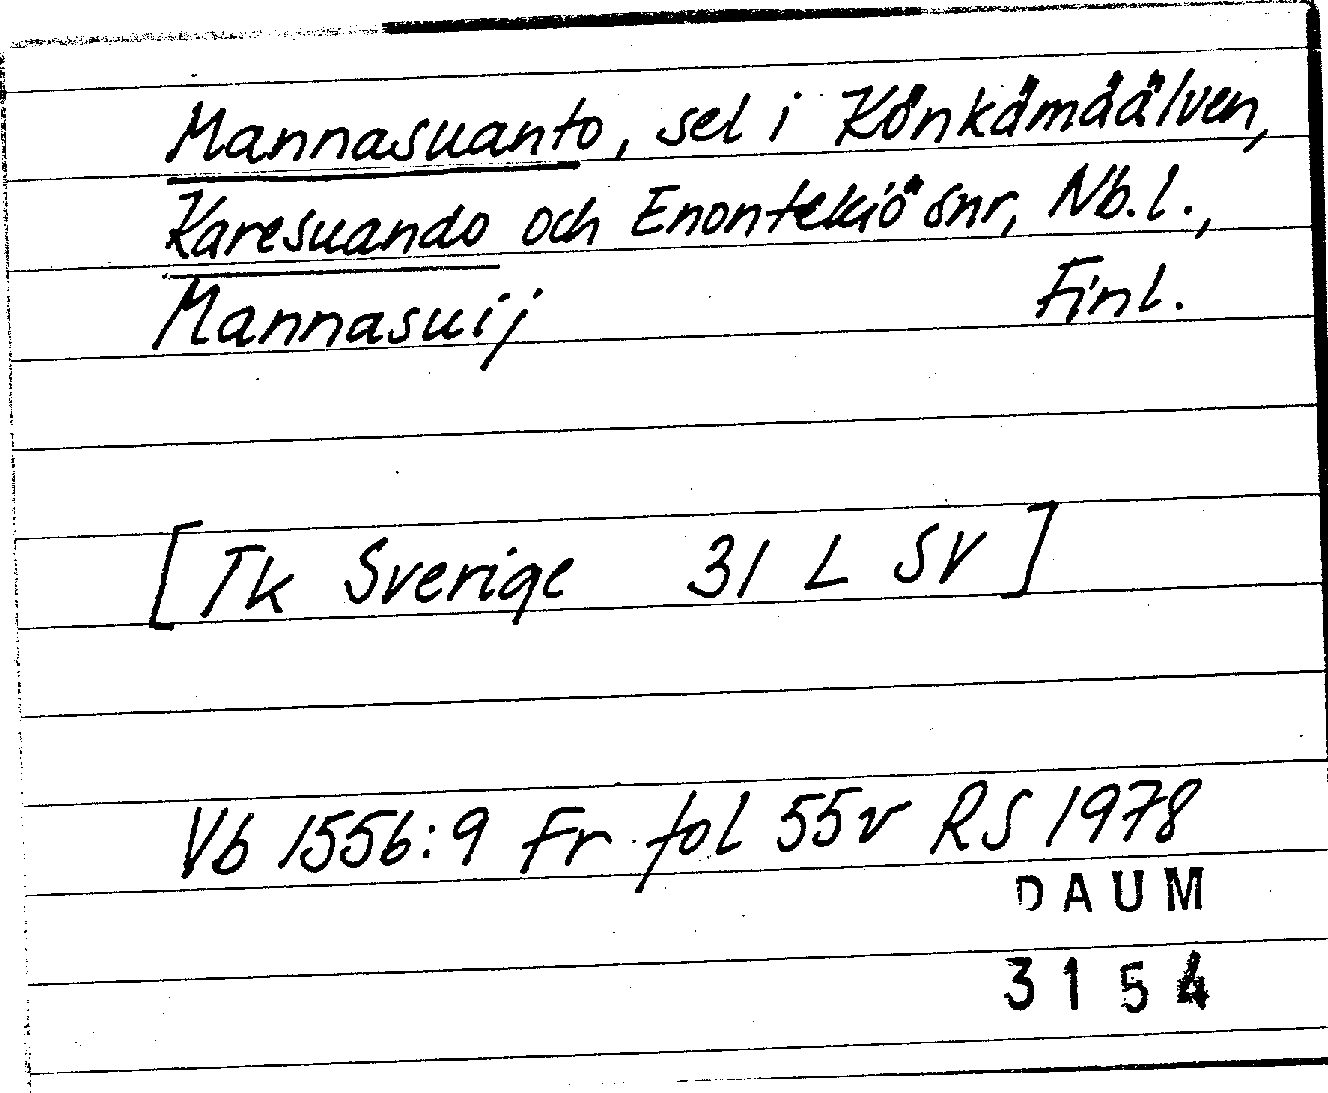 Mannasuanto, sel i Könkämäälven,
Karesuando och Enontekiö snr, Nb.l.,
Mannasuij Finl.
[Tk Sverige 31 L SV]
Vb 1556:9 Fr fol 55v RS 1978
DAUM
3154